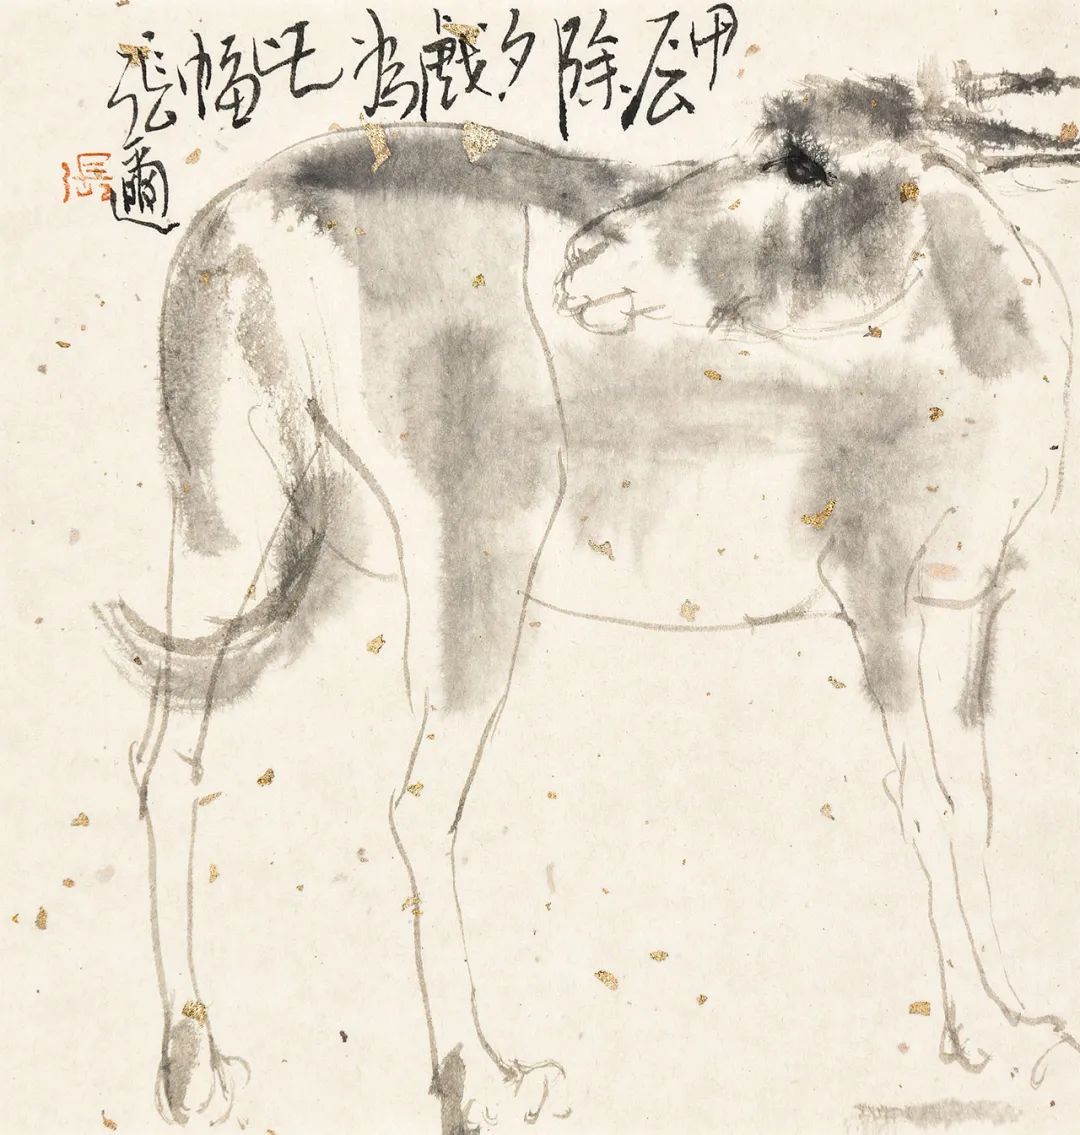 甲辰除夕戲為此幅張邇
張